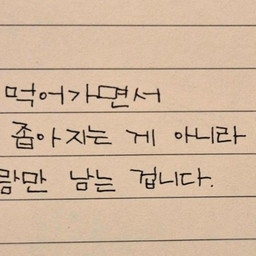 먹어가면서
좁아지는 게 아니라
람만 남는 겁니다.